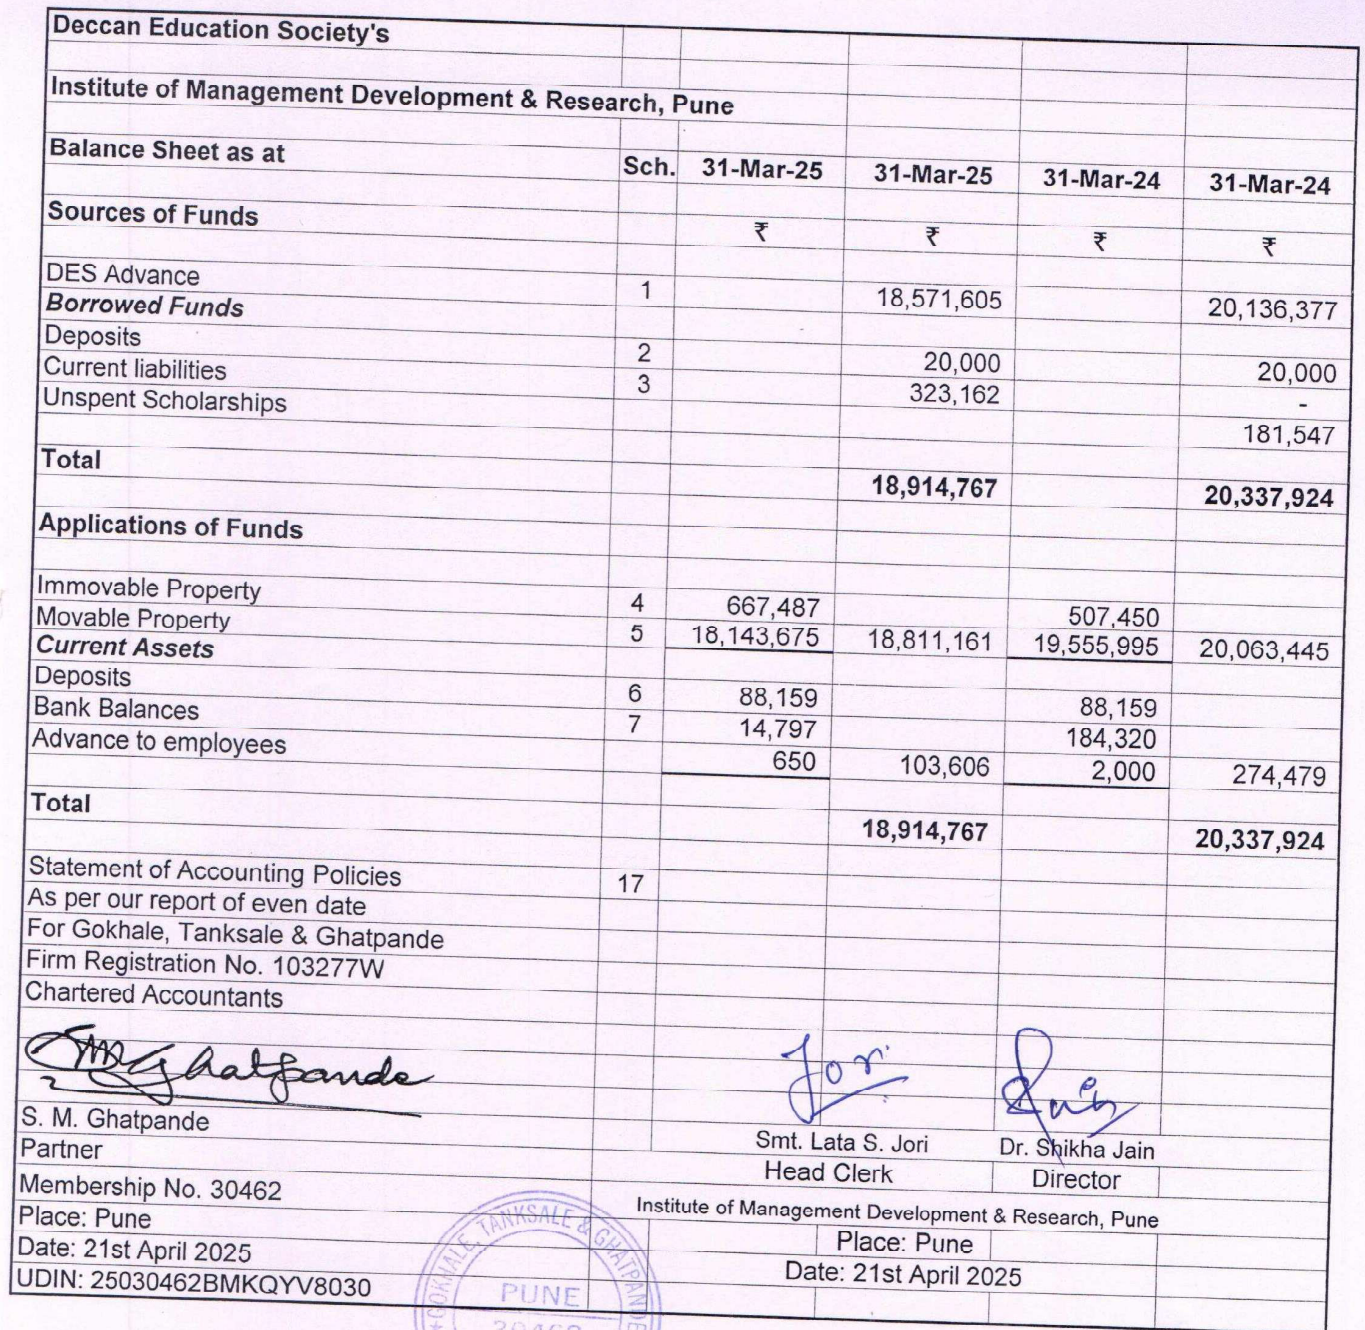 Deccan Education Society's
Institute of Management Development & Research, Pune
Balance Sheet as at Sch. 31-Mar-25 31-Mar-25 31-Mar-24 31-Mar-24
Sources of Funds ₹ ₹ ₹ ₹
DES Advance 1 18,571,605 20,136,377
Borrowed Funds
Deposits 2 20,000 20,000
Current liabilities 3 323,162 -
Unspent Scholarships 181,547
Total 18,914,767 20,337,924
Applications of Funds
Immovable Property 4 667,487 507,450
Movable Property 5 18,143,675 18,811,161 19,555,995 20,063,445
Current Assets
Deposits 6 88,159 88,159
Bank Balances 7 14,797 184,320
Advance to employees 650 103,606 2,000 274,479
Total 18,914,767 20,337,924
Statement of Accounting Policies 17
As per our report of even date
For Gokhale, Tanksale & Ghatpande
Firm Registration No. 103277W
Chartered Accountants
SMGhatpande Jori
S. M. Ghatpande
Partner
Membership No. 30462
Place: Pune
Date: 21st April 2025
UDIN: 25030462BMKQYV8030
Smt. Lata S. Jori Dr. Shikha Jain
Head Clerk Director
Institute of Management Development & Research, Pune
Place: Pune
Date: 21st April 2025
GOKHALE, TANKSALE & GHATPANDE
PUNE
30462